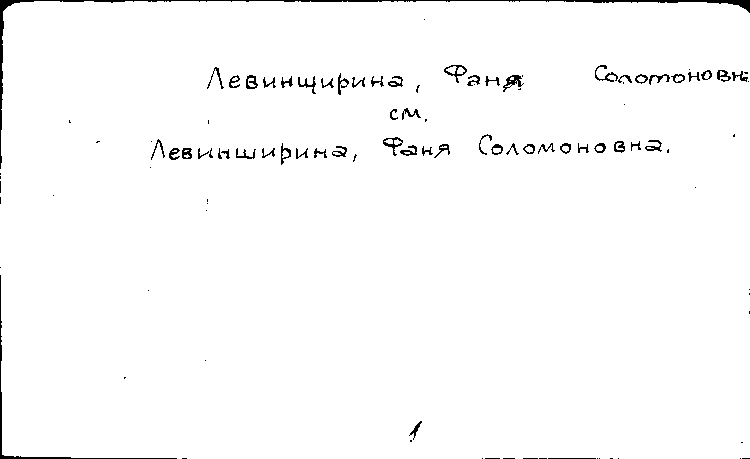 Левинщирина, Фаня Соломоновн
см.
Левинширина, Фаня Соломоновна.
1